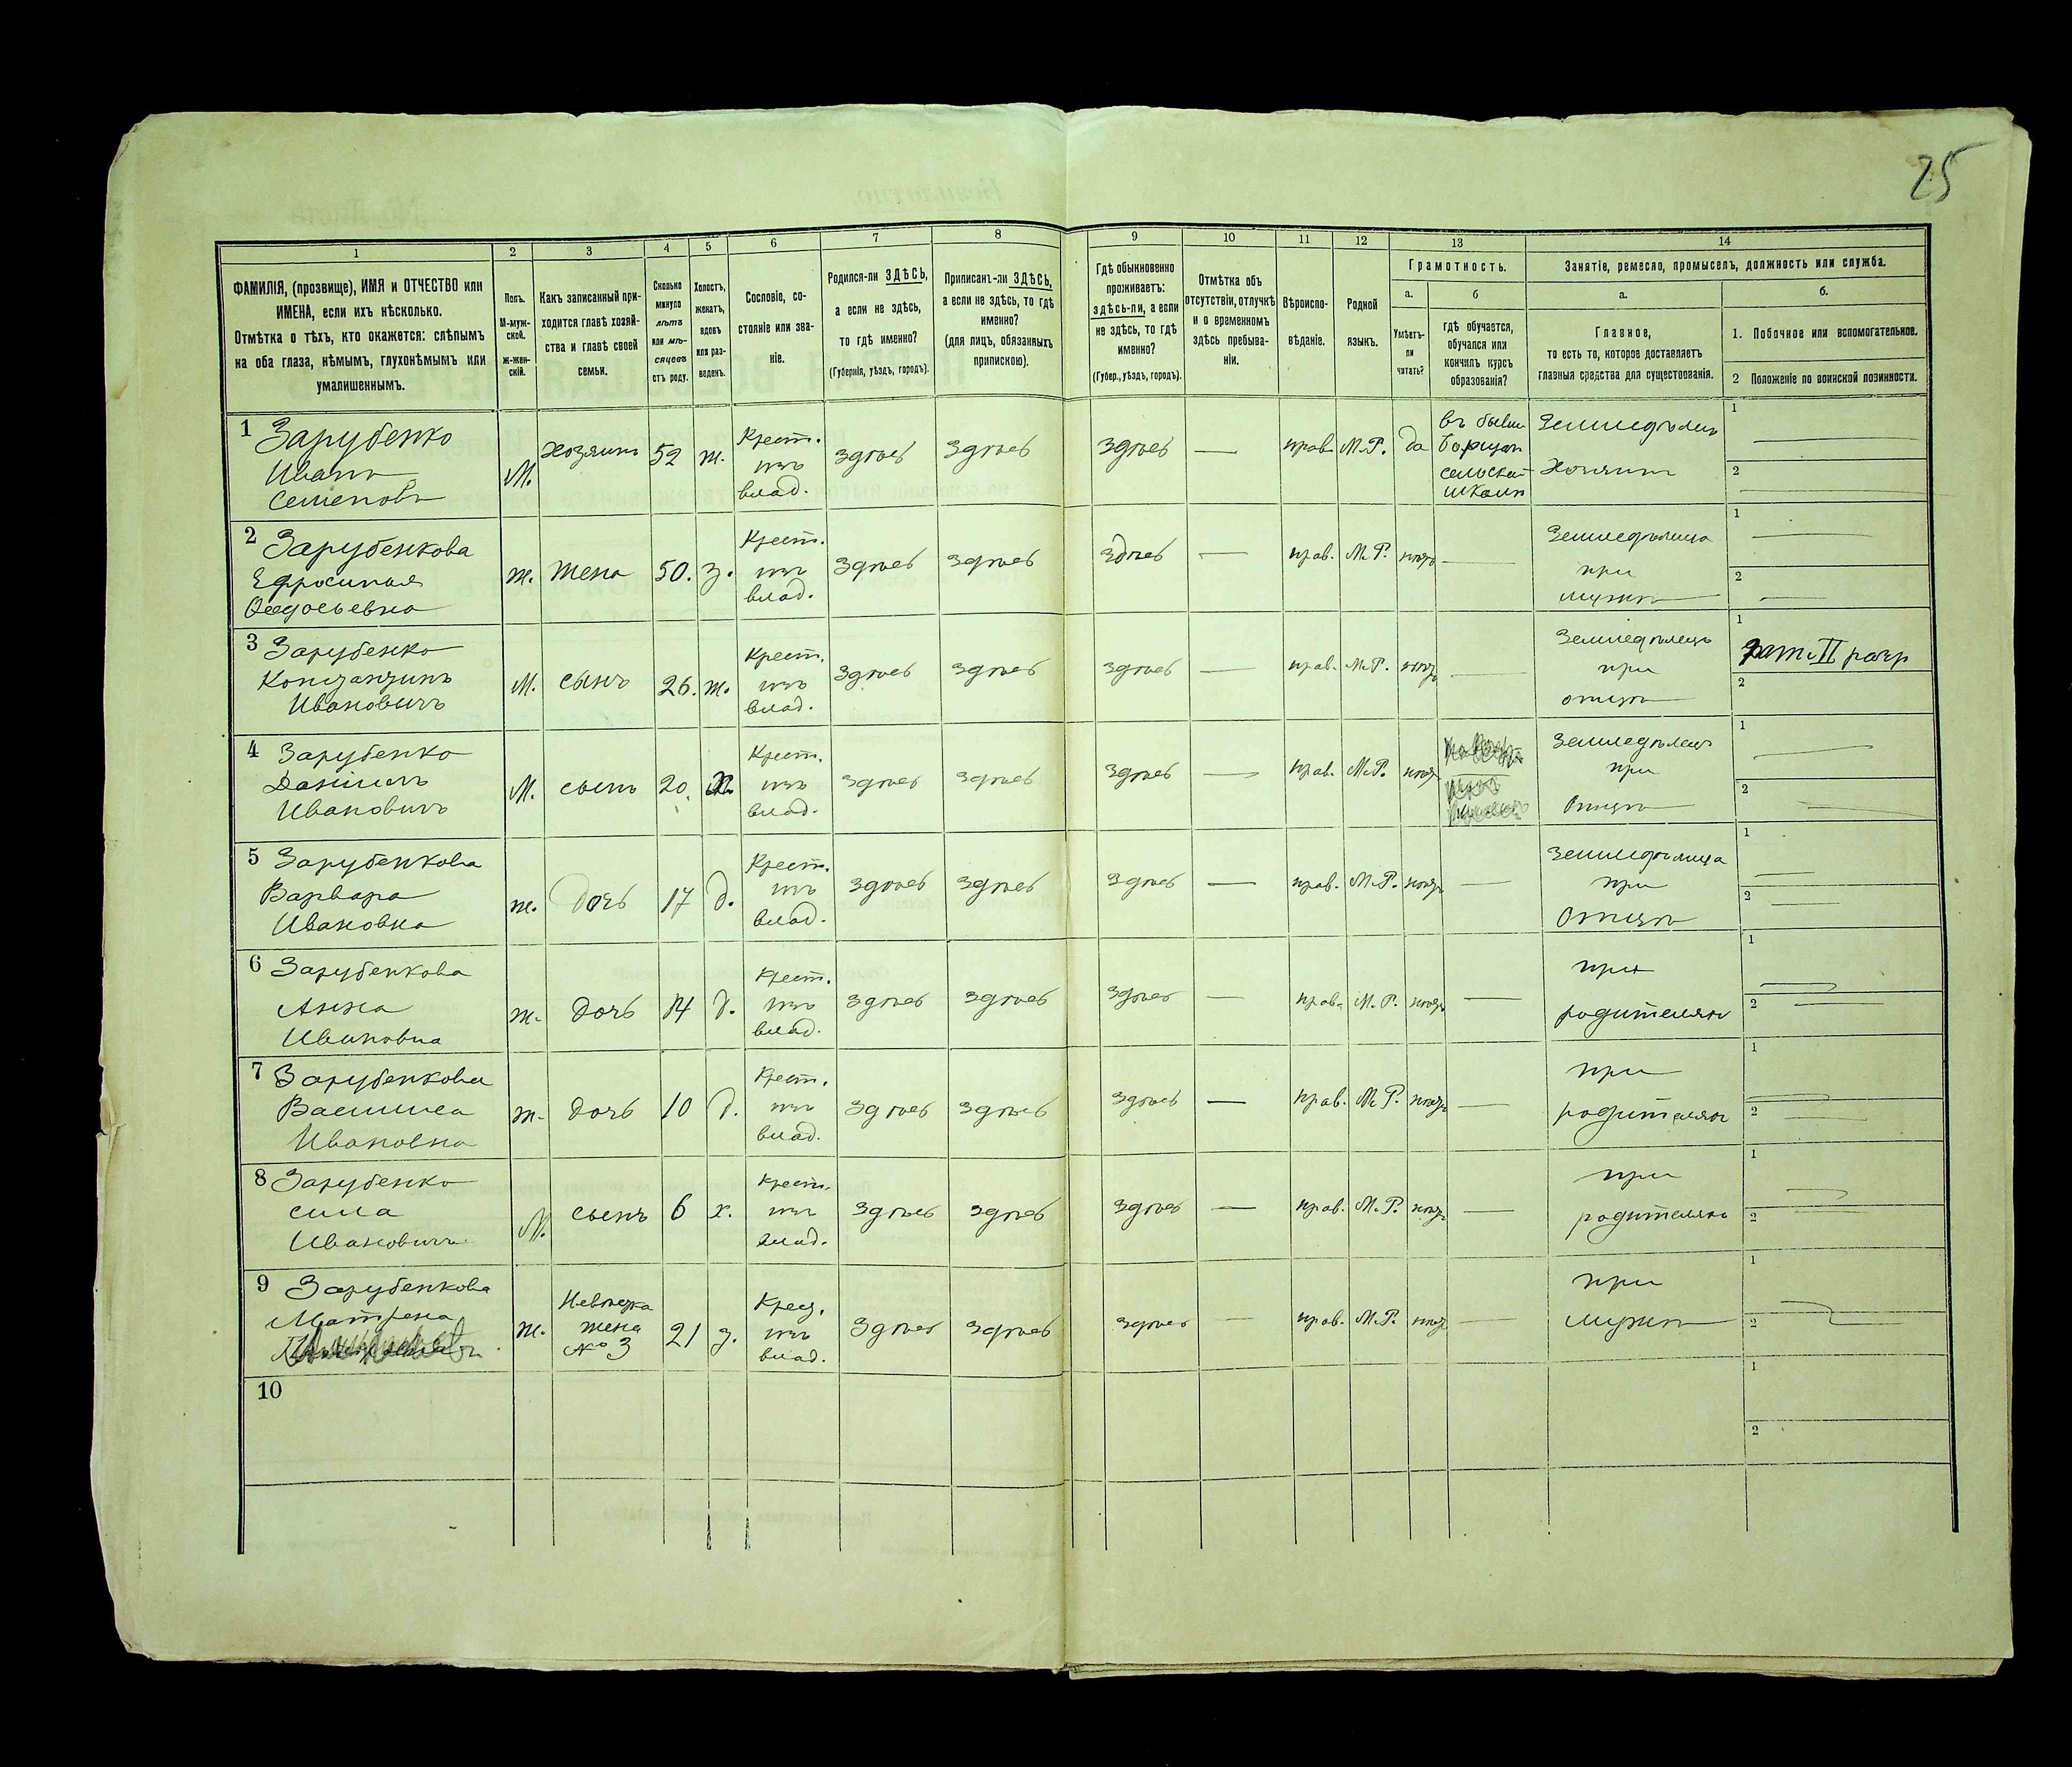 25
1 2 3 4 5 6 7 8 9 10 11 12 13 14
ФАМИЛІЯ, (прозвище), ИМЯ и ОТЧЕСТВО или
ИМЕНА, если ихъ нѣсколько.
Отмѣтка о тѣхъ, кто окажется: слѣпымъ
на оба глаза, нѣмымъ, глухонѣмымъ или
умалишеннымъ.
Полъ.
М-муж-
ской.
ж-жен-
скій.
Какъ записанный при-
ходится главѣ хозяй-
ства и главѣ своей
семьи.
Сколько
минуло
лѣтъ
или мѣ-
сяцевъ
отъ роду.
Холостъ,
женатъ,
вдовъ
или раз-
веденъ.
Сословіе, со-
стояніе или зва-
ніе.
Родился-ли ЗДѢСЬ,
а если не здѣсь,
то гдѣ именно?
(Губернія, уѣздъ, городъ).
Приписанъ-ли ЗДѢСЬ,
а если не здѣсь, то гдѣ
именно?
(для лицъ, обязанныхъ
припискою).
Гдѣ обыкновенно
проживаетъ:
здѣсь-ли, а если
не здѣсь, то гдѣ
именно?
(Губер., уѣздъ, городъ).
Отмѣтка объ
отсутствіи, отлучкѣ
и о временномъ
здѣсь пребыва-
ніи.
Вѣроиспо-
вѣданіе.
Родной
языкъ.
Грамотность.
а.
Умѣетъ-
ли
читать?
б
гдѣ обучается,
обучался или
кончилъ курсъ
образованія?
Занятіе, ремесло, промыселъ, должность или служба.
а.
Главное,
то есть то, которое доставляетъ
главныя средства для существованія.
б.
1. Побочное или вспомогательное.
2 Положеніе по воинской повинности.
1 Зарубенко
Иванъ
Семеновъ
М.
хозяинъ
52
ж.
Крест.
изъ
влад.
здѣсь
здѣсь
здѣсь
—
прав.
М.Р.
да
въ бывш.
сельской
школѣ
Земледѣлец
Хозяинъ
1
2
2 Зарубенкова
Ефросинья
Ѳедосьевна
ж.
жена
50.
з.
Крест.
изъ
влад.
здѣсь
здѣсь
здѣсь
—
прав.
М.Р.
нѣтъ
—
Земледѣлица
при
мужѣ
1
2
3 Зарубенко
Константинъ
Ивановичъ
М.
сынъ
26.
ж.
Крест.
изъ
влад.
здѣсь
здѣсь
здѣсь
—
прав.
М.Р.
нѣтъ
—
Земледѣлецъ
при
отцѣ
1
рат. II разр
2
4 Зарубенко
Даніилъ
Ивановичъ
М.
сынъ
20.
Крест.
изъ
влад.
здѣсь
здѣсь
здѣсь
—
прав.
М.Р.
нѣтъ
Земледѣлец
при
Отцѣ
1
2
5 Зарубенкова
Варвара
Ивановна
ж.
дочь
17
д.
Крест.
изъ
влад.
здѣсь
здѣсь
здѣсь
—
прав.
М.Р.
нѣтъ
—
Земледѣлица
при
Отцѣ
1
2
6 Зарубенкова
Анна
Ивановна
ж.
дочь
14
д.
Крест.
изъ
влад.
здѣсь
здѣсь
здѣсь
—
прав.
М.Р.
нѣтъ
—
при
родителяхъ
1
2
7 Зарубенкова
Василиса
Ивановна
ж.
дочь
10
д.
Крест.
изъ
влад.
здѣсь
здѣсь
здѣсь
—
прав.
М.Р.
нѣтъ
—
при
родителяхъ
1
2
8 Зарубенко
сила
Ивановичъ
М.
сынъ
6
х.
Крест.
изъ
влад.
здѣсь
здѣсь
здѣсь
—
прав.
М.Р.
нѣтъ
—
при
родителяхъ
1
2
9 Зарубенкова
Матрена
ж.
Невѣстка
жена
№ 3
21
з.
Крест.
изъ
влад.
здѣсь
здѣсь
здѣсь
—
прав.
М.Р.
нѣтъ
—
при
мужѣ
1
2
10
1
2